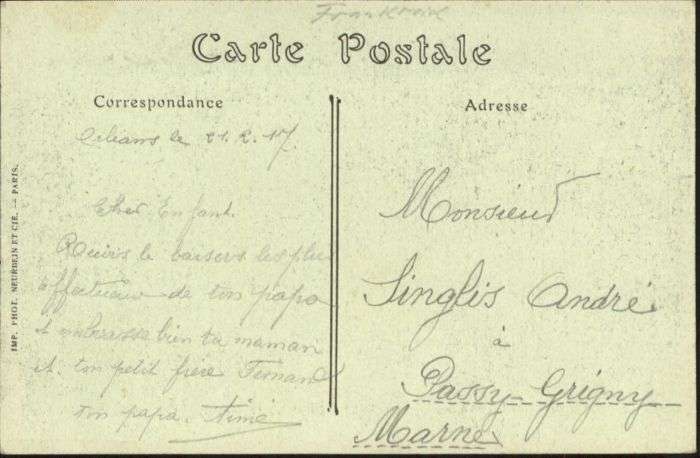 Frankreich
Carte Postale
Correspondance
Orleans le 21.2.17
Cher Enfant.
Recois le baisers les plus
affectueux de ton papa
et embrasse bien ta maman
et ton petit frère Fernand
ton papa. Aimé
Adresse
Monsieur
Singlis André
à
Passy-Grigny
Marne
IMP. PHOT. NEURDEIN ET CIE. — PARIS.